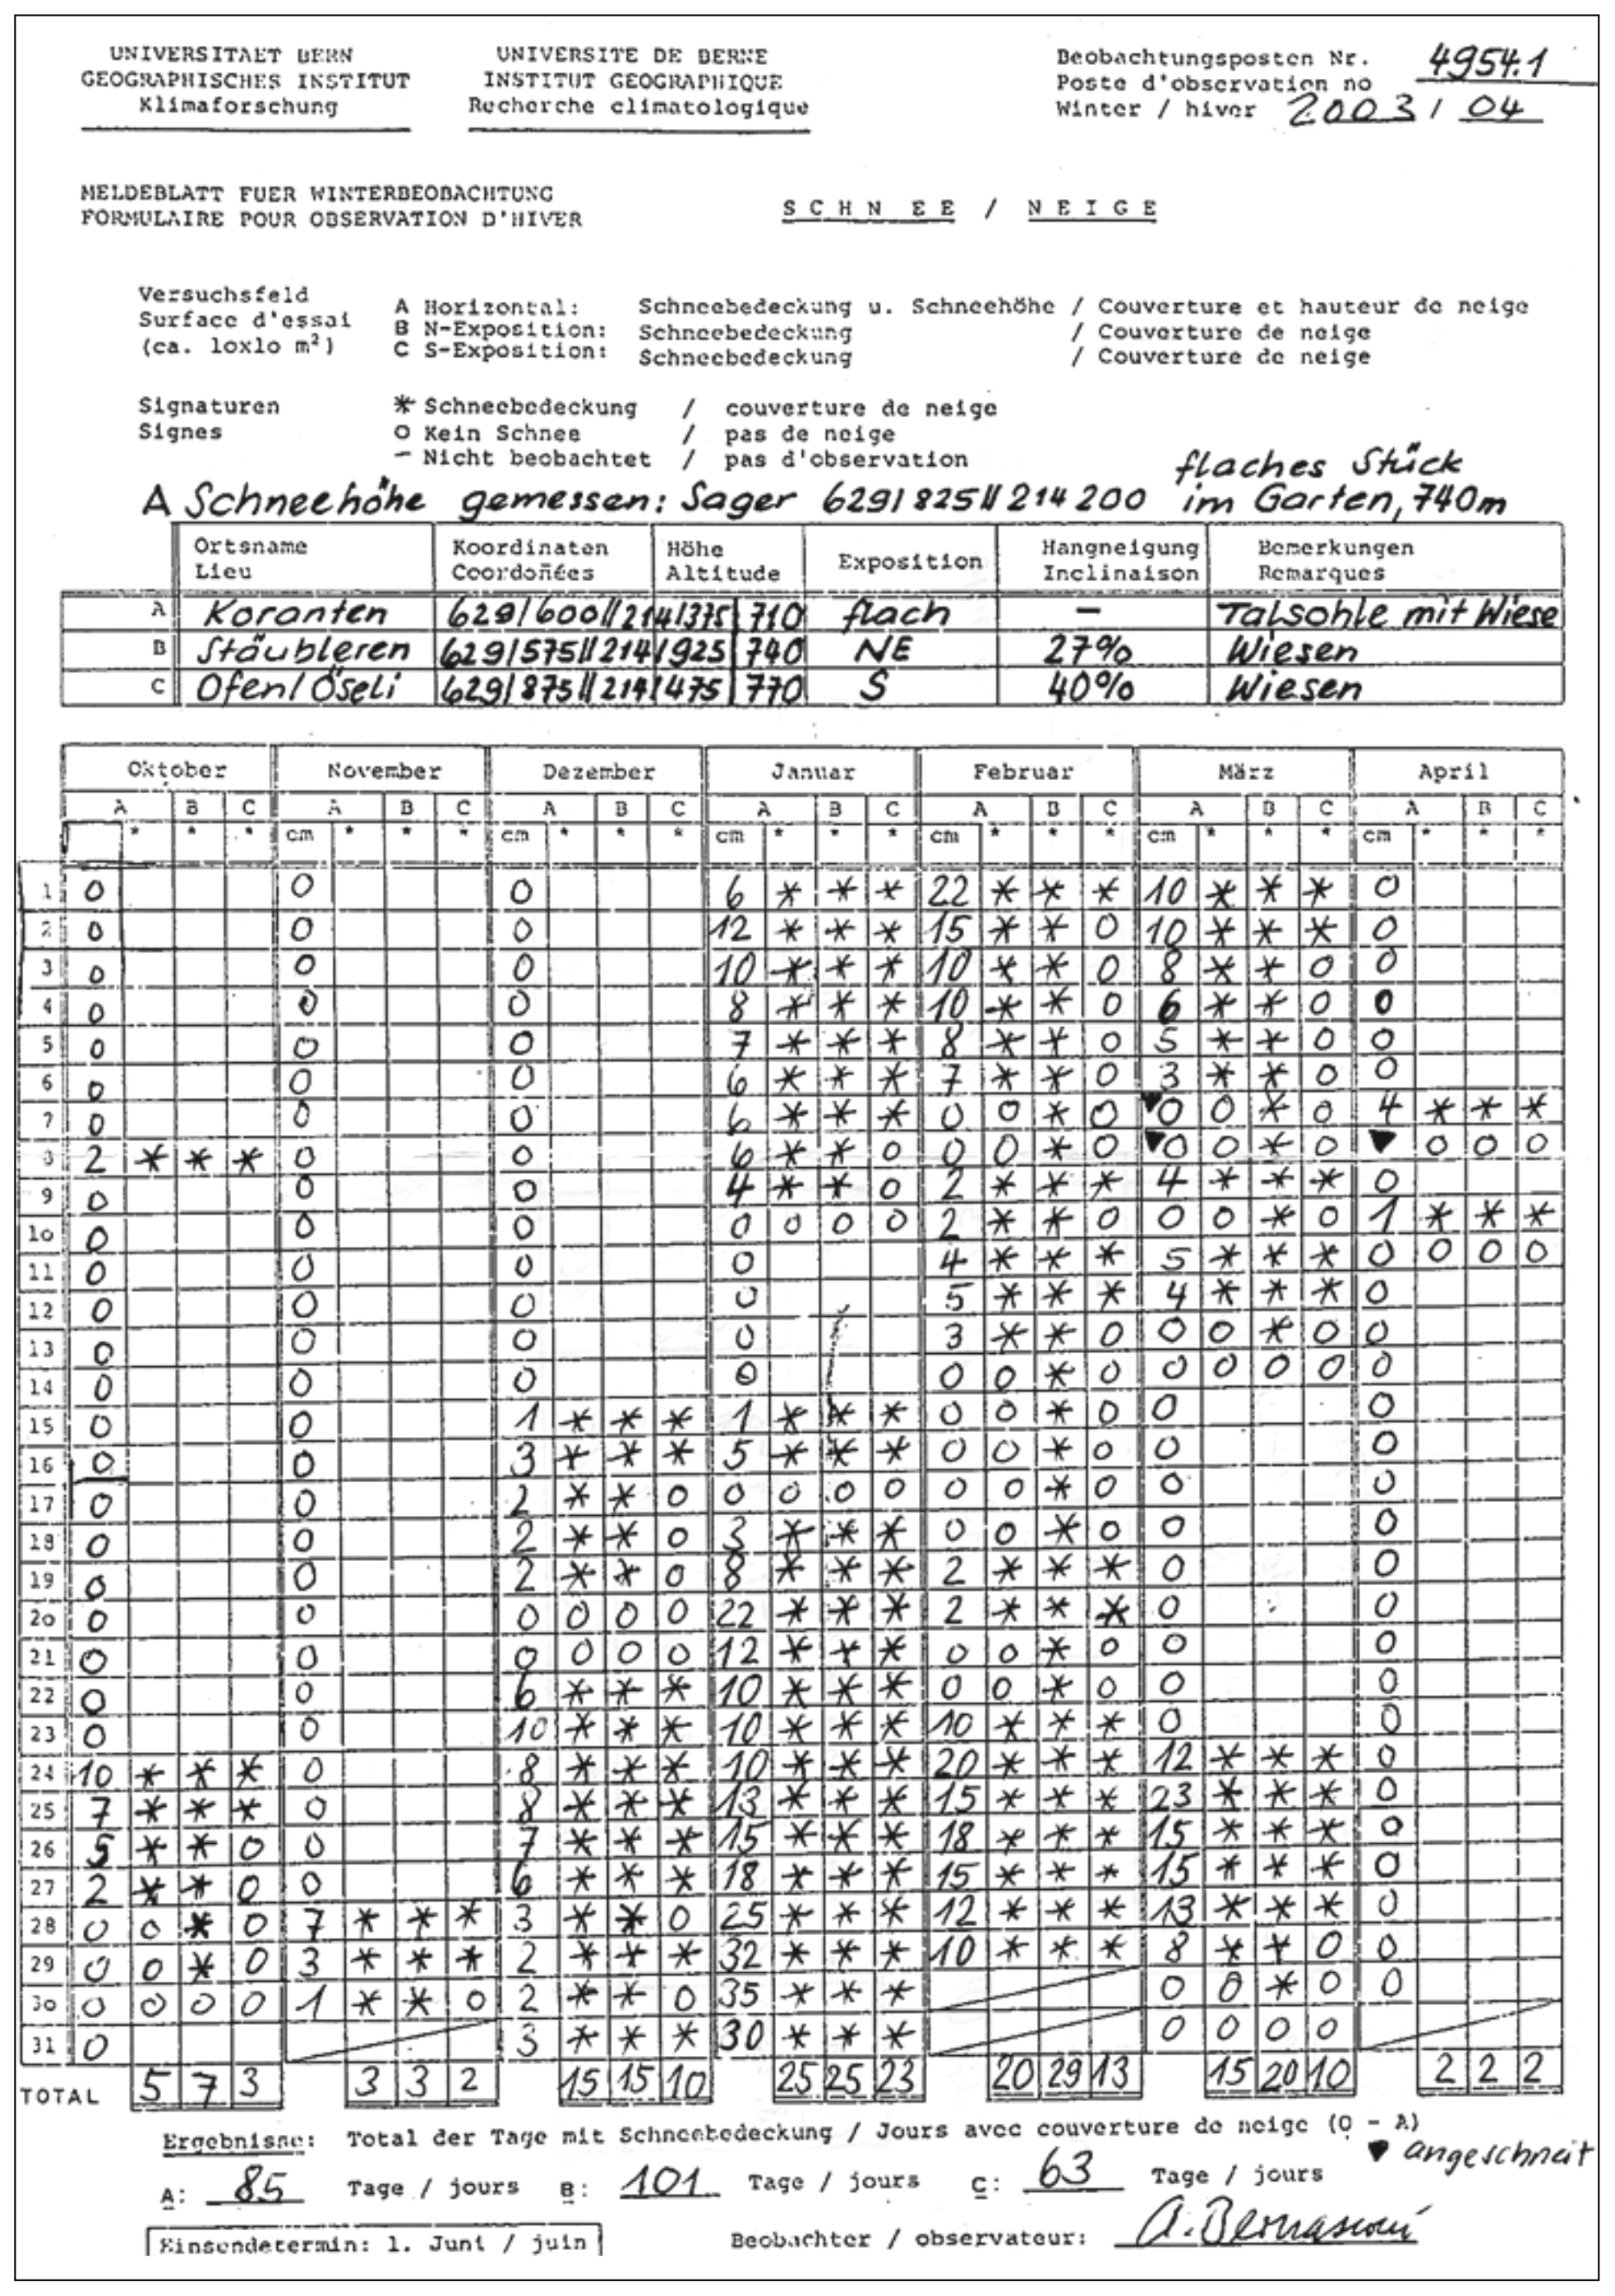 UNIVERSITAET BERN UNIVERSITE DE BERNE Beobachtungsposten Nr. 4954.1
GEOGRAPHISCHES INSTITUT INSTITUT GEOGRAPHIQUE Poste d'observation no
Klimaforschung Recherche climatologique Winter / hiver 2003 / 04
MELDEBLATT FUER WINTERBEOBACHTUNG
FORMULAIRE POUR OBSERVATION D'HIVER SCHNEE / NEIGE
Versuchsfeld
Surface d'essai A Horizontal: Schneebedeckung u. Schneehöhe / Couverture et hauteur de neige
(ca. loxlo m²) B N-Exposition: Schneebedeckung / Couverture de neige
C S-Exposition: Schneebedeckung / Couverture de neige
Signaturen * Schneebedeckung / couverture de neige
Signes O Kein Schnee / pas de neige
- Nicht beobachtet / pas d'observation
flaches Stück
A Schneehöhe gemessen: Sager 629/825//214 200 im Garten, 740m
Ortsname Koordinaten Höhe Exposition Hangneigung Bemerkungen
Lieu Coordoñées Altitude Inclinaison Remarques
A Koranten 629/600//214/375 710 flach - Talsohle mit Wiese
B Stäubleren 629/575//214/925 740 NE 27% Wiesen
C Ofen/Öseli 629/875//214/475 770 S 40% Wiesen
Oktober November Dezember Januar Februar März April
A B C A B C A B C A B C A B C A B C A B C
* * * cm * * * cm * * * cm * * * cm * * * cm * * * cm * * *
1 0 0 0 6 * * * 22 * * * 10 * * * 0
2 0 0 0 12 * * * 15 * * 0 10 * * * 0
3 0 0 0 10 * * * 10 * * 0 8 * * 0 0
4 0 0 0 8 * * * 10 * * 0 6 * * 0 0
5 0 0 0 7 * * * 8 * * 0 5 * * 0 0
6 0 0 0 6 * * * 7 * * 0 3 * * 0 0
7 0 0 0 6 * * * 0 0 * 0 ▼0 0 * 0 4 * * *
8 2 * * * 0 0 6 * * 0 0 0 * 0 ▼0 0 * 0 ▼ 0 0 0
9 0 0 0 4 * * 0 2 * * * 4 * * * 0
1o 0 0 0 0 0 0 0 2 * * 0 0 0 * 0 1 * * *
11 0 0 0 0 4 * * * 5 * * * 0 0 0 0
12 0 0 0 0 5 * * * 4 * * * 0
13 0 0 0 0 3 * * 0 0 0 * 0 0
14 0 0 0 0 0 0 * 0 0 0 0 0 0
15 0 0 1 * * * 1 * * * 0 0 * 0 0 0
16 0 0 3 * * * 5 * * * 0 0 * 0 0 0
17 0 0 2 * * 0 0 0 0 0 0 0 * 0 0 0
18 0 0 2 * * 0 3 * * * 0 0 * 0 0 0
19 0 0 2 * * 0 8 * * * 2 * * * 0 0
2o 0 0 0 0 0 0 22 * * * 2 * * * 0 0
21 0 0 0 0 0 0 12 * * * 0 0 * 0 0 0
22 0 0 6 * * * 10 * * * 0 0 * 0 0 0
23 0 0 10 * * * 10 * * * 10 * * * 0 0
24 10 * * * 0 8 * * * 10 * * * 20 * * * 12 * * * 0
25 7 * * * 0 8 * * * 13 * * * 15 * * * 23 * * * 0
26 5 * * 0 0 7 * * * 15 * * * 18 * * * 15 * * * 0
27 2 * * 0 0 6 * * * 18 * * * 15 * * * 15 * * * 0
28 0 0 * 0 7 * * * 3 * * 0 25 * * * 12 * * * 13 * * * 0
29 0 0 * 0 3 * * * 2 * * * 32 * * * 10 * * * 8 * * 0 0
3o 0 0 0 0 1 * * 0 2 * * 0 35 * * * 0 0 * 0 0
31 0 3 * * * 30 * * * 0 0 0 0
TOTAL 5 7 3 3 3 2 15 15 10 25 25 23 20 29 13 15 20 10 2 2 2
Ergebnisse: Total der Tage mit Schneebedeckung / Jours avec couverture de neige (O - A)
▼ angeschneit
A: 85 Tage / jours B: 101 Tage / jours C: 63 Tage / jours
Einsendetermin: 1. Juni / juin Beobachter / observateur: A. Bernasconi